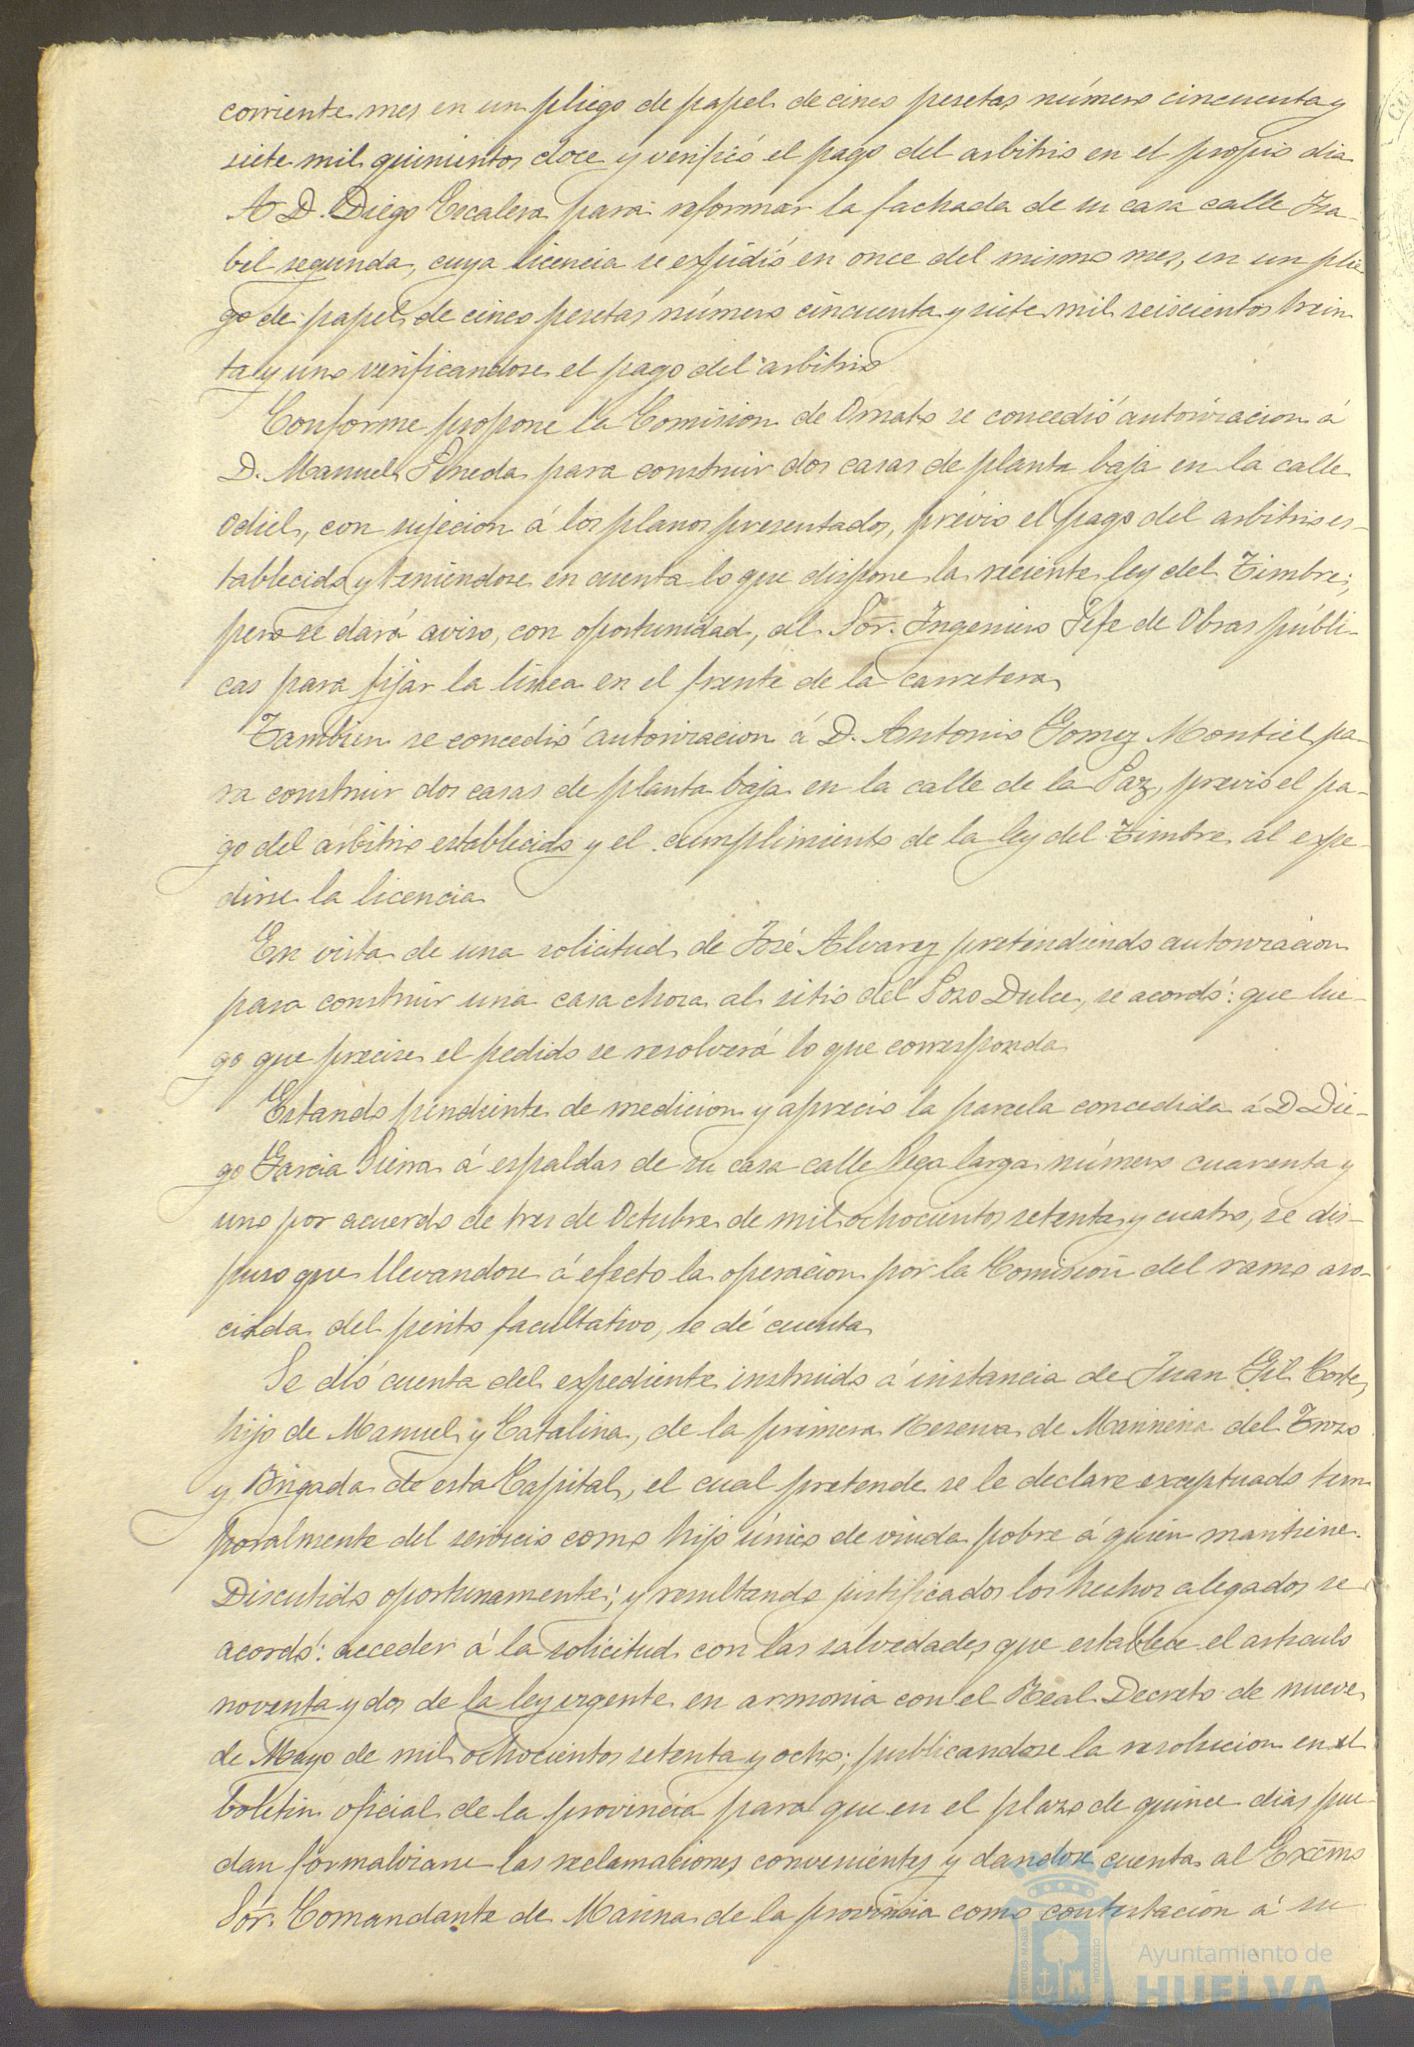 corriente mes en un pliego de papel de cinco pesetas número cincuenta y
siete mil quinientos doce y verificó el pago del arbitrio en el propio dia
A D. Diego Escalera para reformar la fachada de su casa calle Isa-
bel segunda, cuya licencia se expidió en once del mismo mes, en un plie
go de papel de cinco pesetas número cincuenta y siete mil seiscientos trein
ta y uno verificandose el pago del arbitrio
Conforme propone la Comision de Ornato se concedió autorizacion á
D. Manuel Pineda para construir dos casas de planta baja en la calle
Odiel, con sujecion á los planos presentados, prévio el pago del arbitrio es-
tablecido y teniendose en cuenta lo que dispone la reciente ley del Timbre;
pero se dará aviso, con oportunidad, al Sor. Ingeniero Jefe de Obras públi-
cas para fijar la linea en el frente de la carretera
Tambien se concedió autorizacion á D. Antonio Gomez Montiel pa-
ra construir dos casas de planta baja en la calle de la Paz, previo el pa-
go del arbitrio establecido y el cumplimiento de la ley del Timbre al expe-
dirse la licencia
En vista de una solicitud de José Alvarez pretendiendo autorizacion
para construir una casa choza al sitio del Pozo Dulce, se acordó: que lue-
go que precise el pedido se resolverá lo que corresponda
Estando pendiente de medicion y aprecio la parcela concedida á D Die-
go Garcia Sierra á espaldas de su casa calle Vega larga número cuarenta y
uno por acuerdo de tres de Octubre de mil ochocientos setenta y cuatro, se dis-
puso que llevandose á efecto la operacion por la Comision del ramo aso-
ciada del perito facultativo, se dé cuenta
Se dió cuenta del expediente instruido á instancia de Juan Gil Corte,
hijo de Manuel y Catalina, de la primera Reserva de Marineria del Trozo
y Brigada de esta Capital, el cual pretende se le declare exceptuado tem
poralmente del servicio como hijo único de viuda pobre á quien mantiene.
Discutido oportunamente; y resultando justificados los hechos alegados se
acordó: acceder á la solicitud con las salvedades que establece el articulo
noventa y dos de la ley vigente en armonia con el Real Decreto de nueve
de Mayo de mil ochocientos setenta y ocho; publicandose la resolucion en el
boletin oficial de la provincia para que en el plazo de quince dias pue-
dan formalizarse las reclamaciones convenientes y dandose cuenta al Excmo
Sor. Comandante de Marina de la provincia como contestacion á su
Ayuntamiento de
HUELVA